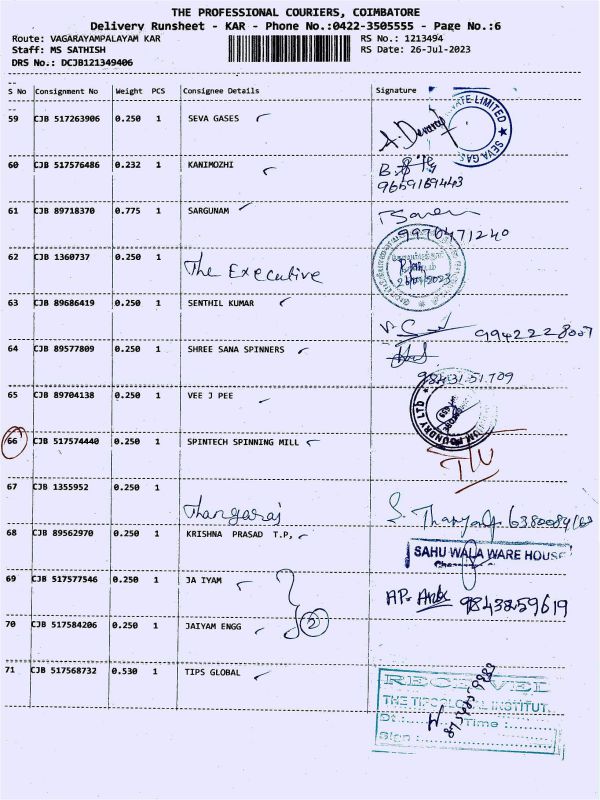 THE PROFESSIONAL COURIERS, COIMBATORE
Delivery Runsheet - KAR - Phone No.:0422-3505555 - Page No.:6
Route: VAGARAYAMPALAYAM KAR RS No.: 1213494
Staff: MS SATHISH RS Date: 26-Jul-2023
DRS No.: DCJB121349406
S No Consignment No Weight PCS Consignee Details Signature
59 CJB 517263906 0.250 1 SEVA GASES
ATE LIMITED ★ SEVA GAS
60 CJB 517576486 0.232 1 KANIMOZHI
9659169443
61 CJB 89718370 0.775 1 SARGUNAM
9976471240
62 CJB 1360737 0.250 1 The Executive
26/07/2023
63 CJB 89686419 0.250 1 SENTHIL KUMAR
9942228007
64 CJB 89577809 0.250 1 SHREE SANA SPINNERS
98431.51.709
65 CJB 89704138 0.250 1 VEE J PEE
FOUNDRY LTD
66 CJB 517574440 0.250 1 SPINTECH SPINNING MILL
67 CJB 1355952 0.250 1 Thangaraj
68 CJB 89562970 0.250 1 KRISHNA PRASAD T.P,
SAHU WALA WARE HOUSE
69 CJB 517577546 0.250 1 JA IYAM
9843259619
70 CJB 517584206 0.250 1 JAIYAM ENGG
2
71 CJB 517568732 0.530 1 TIPS GLOBAL
RECEIVED
THE TIPS GLOBAL INSTITUT
Dt : Time :
Sign :